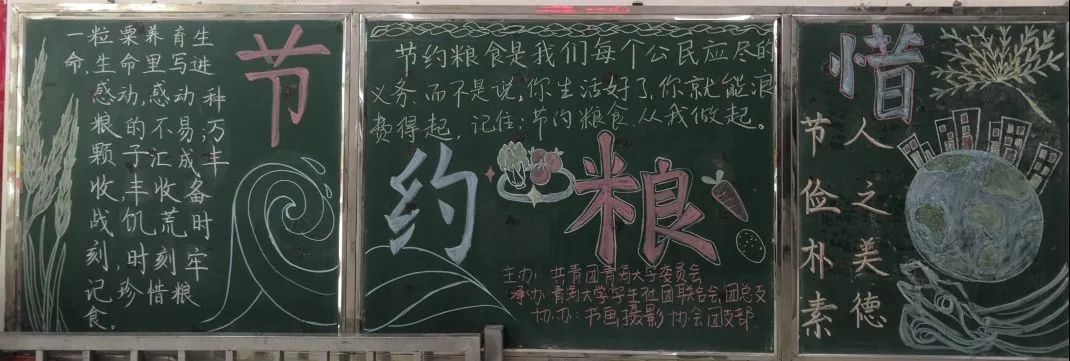 节
一粒粟养育生
命,生命里写进
感动,感动种
粮的不易;万
颗子汇成丰
收,丰收备
战饥荒时
刻,时刻牢
记,珍惜粮
食。
节约粮食是我们每个公民应尽的
义务.而不是说,你生活好了,你就能浪
费得起,记住:节约粮食.从我做起。
约 粮
主办:共青团青海大学委员会
承办:青海大学学生社团联合会,团总支
协办:书画摄影协会团支部
惜
节俭朴素
人之美德